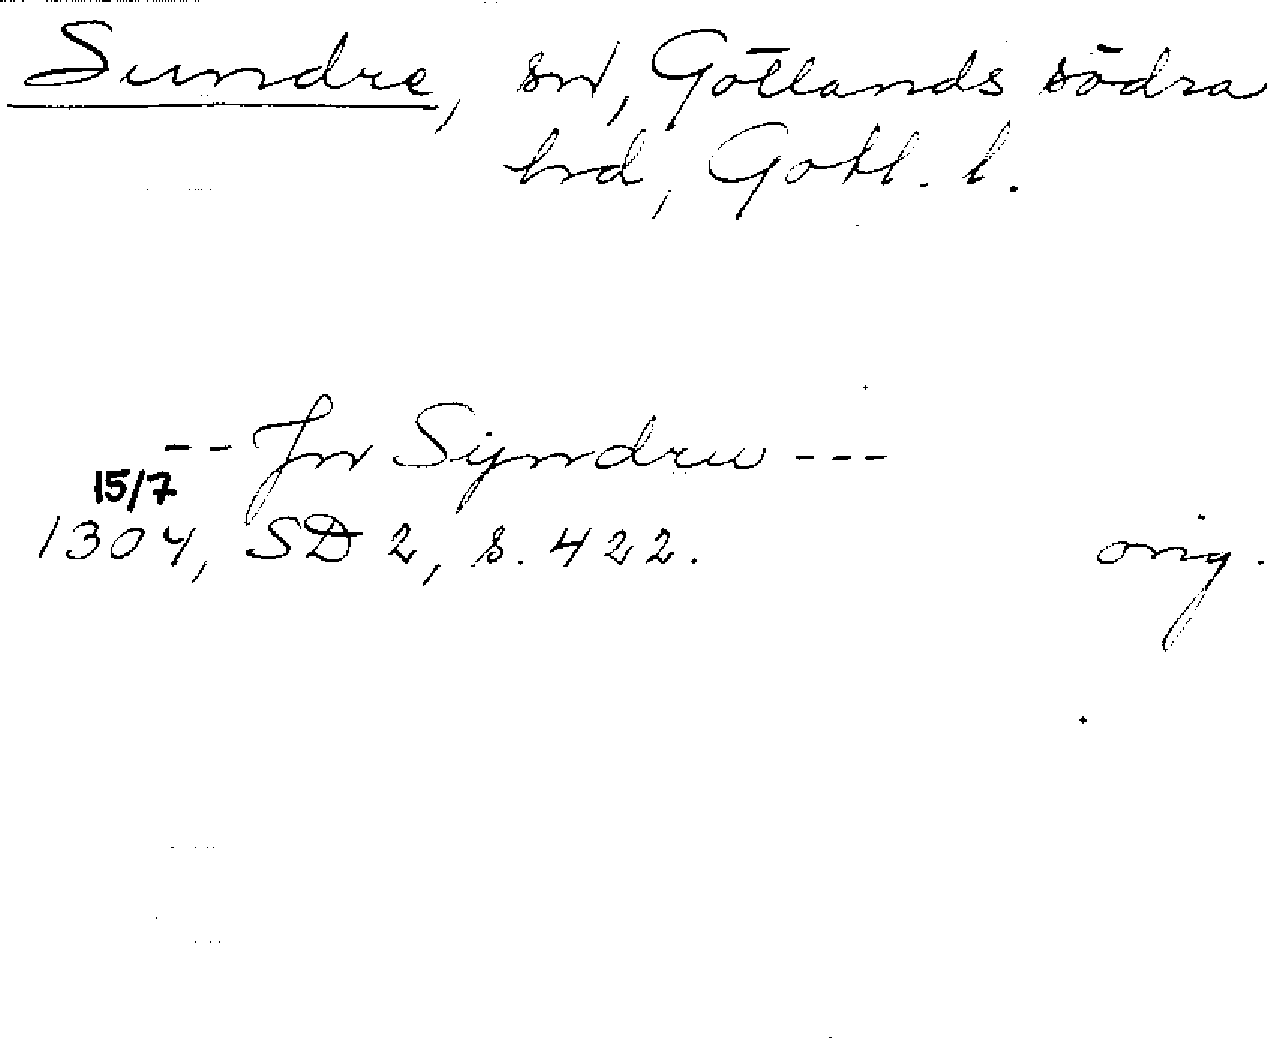 Sundre, sn, Gotlands södra
hrd, Gotl. l.
-- Jn Syndru ---
15/7
1304, SD 2, s. 422. orig.